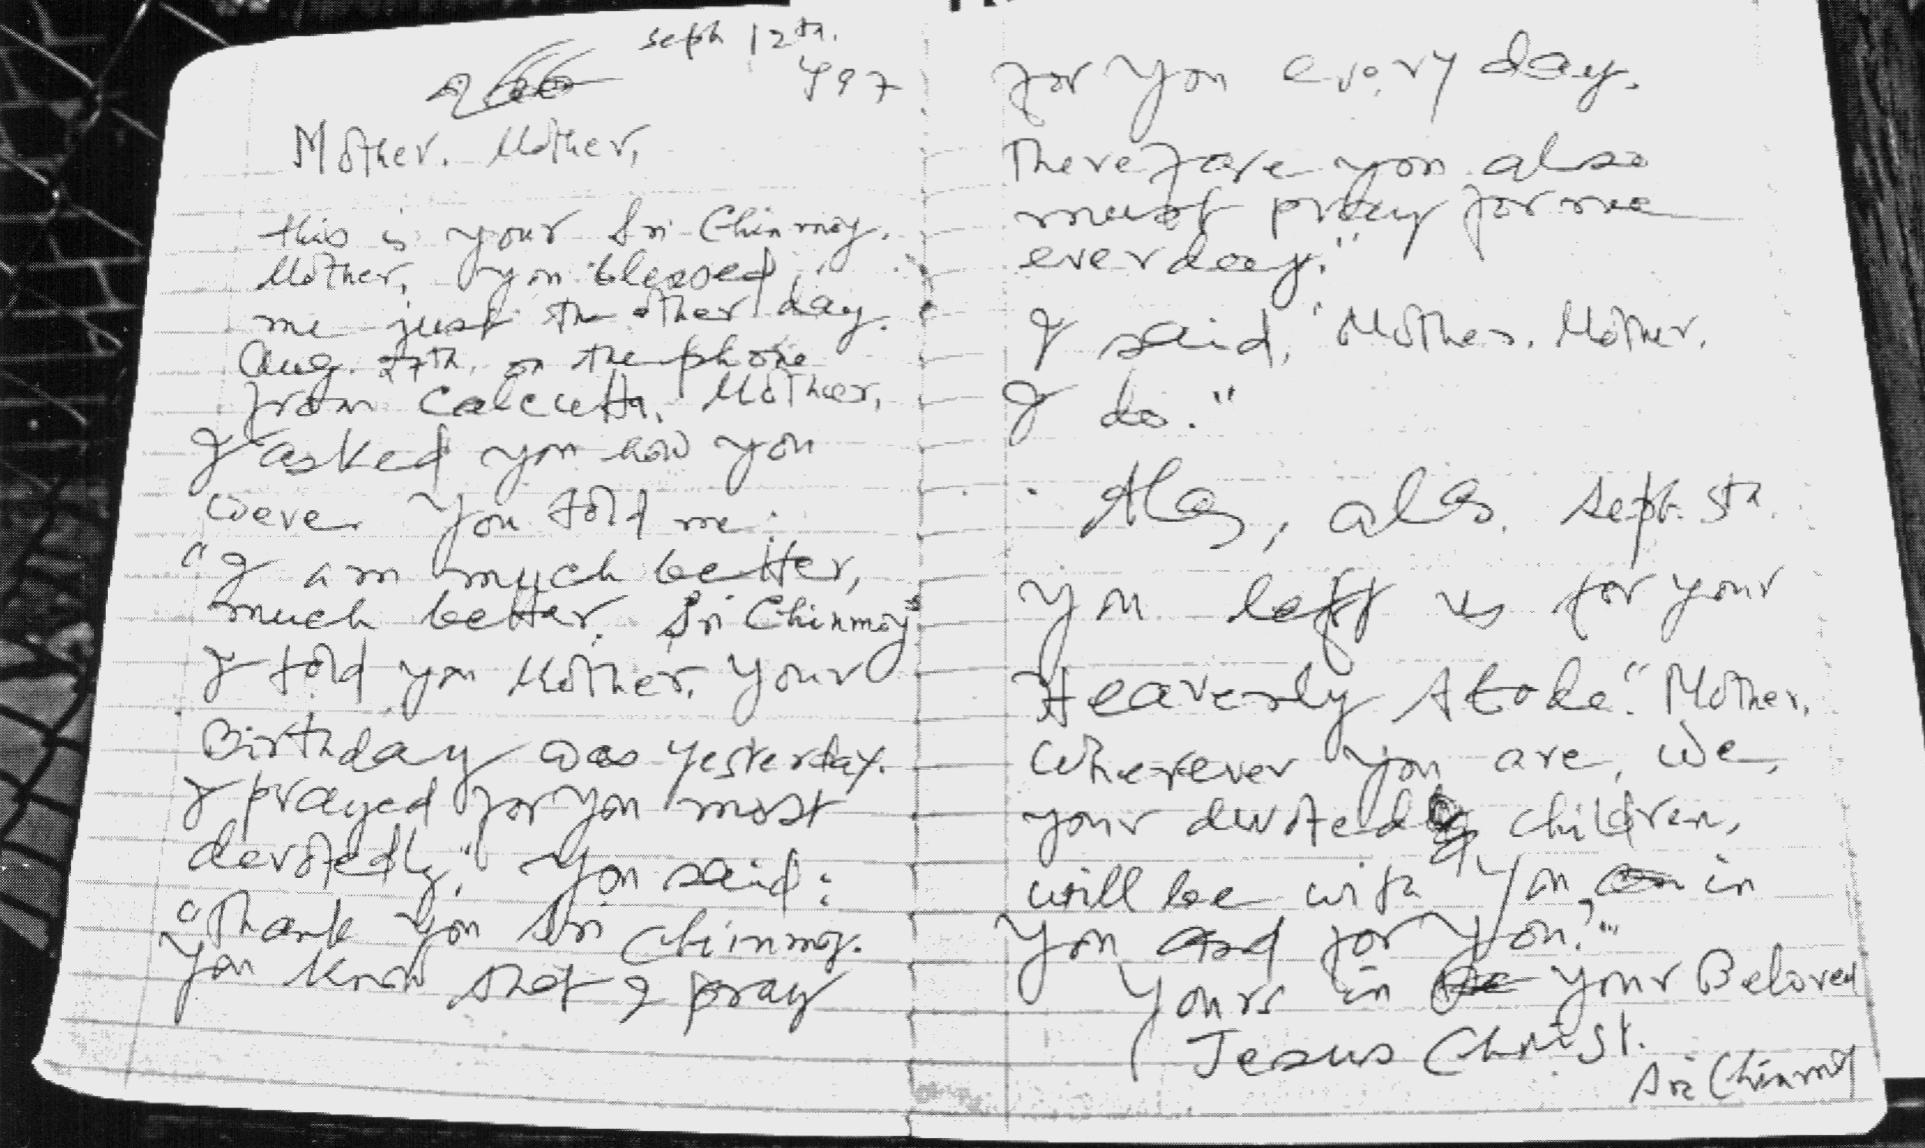 Seph 12th.
997
Mother. Mother,
this is your Sri Chinmoy.
Mother, you blessed
me just the other day.
Aug. 27th, on the phone
from Calcutta. Mother,
I asked you how you
were. You told me:
"I am much better,
much better. Sri Chinmoy"
I told you Mother, your
Birthday was yesterday.
I prayed for you most
devotedly." You said:
"Thank you Sri Chinmoy.
You know that I pray
for you every day.
Therefore you also
must pray for me
everday."
I said, "Mother. Mother.
I do."
Alas, alas. Sept. 5th
you left us for your
Heavenly Abode." Mother,
wherever you are, we,
your devoted children,
will be with you in
you and for you."
Yours in your Beloved
Jesus Christ.
Sri Chinmoy